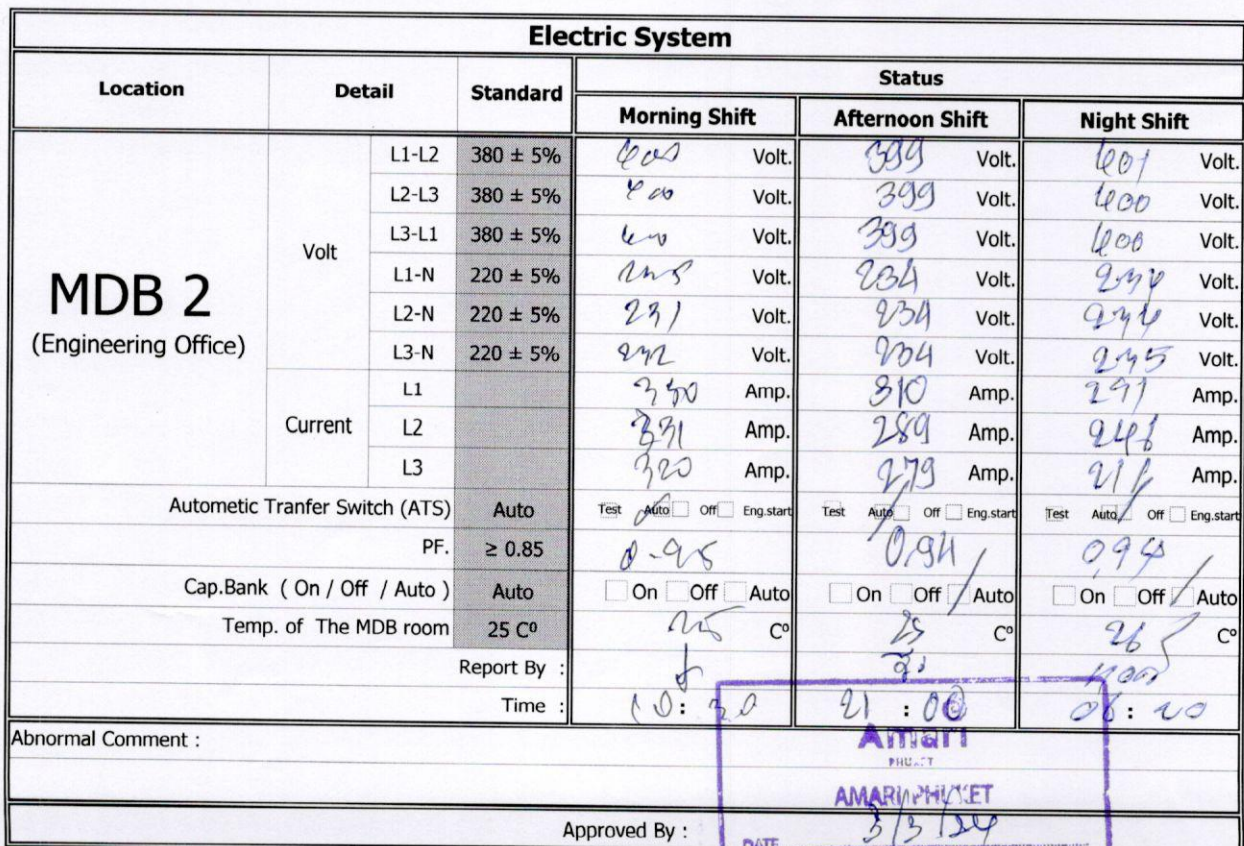 Electric System
Location Detail Standard Status
Morning Shift Afternoon Shift Night Shift
MDB 2
(Engineering Office)
Volt
L1-L2 380 ± 5% 400 Volt. 399 Volt. 401 Volt.
L2-L3 380 ± 5% 400 Volt. 399 Volt. 400 Volt.
L3-L1 380 ± 5% 400 Volt. 399 Volt. 400 Volt.
L1-N 220 ± 5% Volt. 234 Volt. 234 Volt.
L2-N 220 ± 5% 231 Volt. 234 Volt. 234 Volt.
L3-N 220 ± 5% 232 Volt. 234 Volt. 235 Volt.
Current
L1 330 Amp. 310 Amp. 291 Amp.
L2 331 Amp. 289 Amp. Amp.
L3 320 Amp. 279 Amp. Amp.
Autometic Tranfer Switch (ATS) Auto Test Auto Off Eng.start Test Auto Off Eng.start Test Auto Off Eng.start
PF. ≥ 0.85 0.95 0.94 0.94
Cap.Bank ( On / Off / Auto ) Auto On Off Auto On Off Auto On Off Auto
Temp. of The MDB room 25 Cº 25 Cº 25 Cº 26 Cº
Report By :
Time : 10: 30 21 : 00 06 : 20
Abnormal Comment :
Amari
PHUKET
AMARI PHUKET
Approved By :
DATE 3/3/24